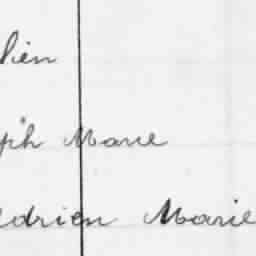 lien
ph Marie
drien Marie